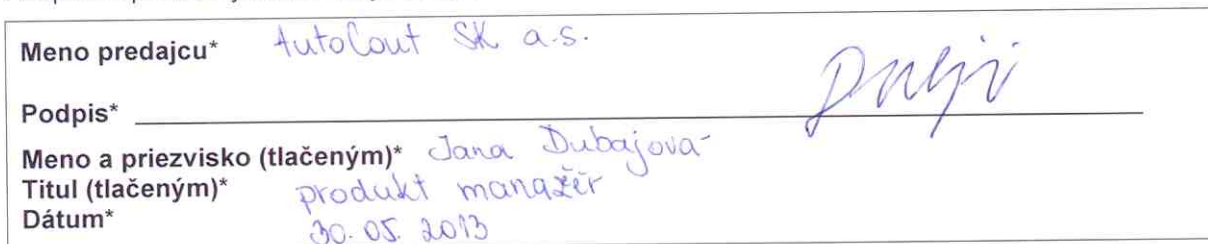 Meno predajcu* AutoCout SK a.s.
Podpis*
Meno a priezvisko (tlačeným)* Jana Dubajova
Titul (tlačeným)* produkt manažér
Dátum* 30.05.2013